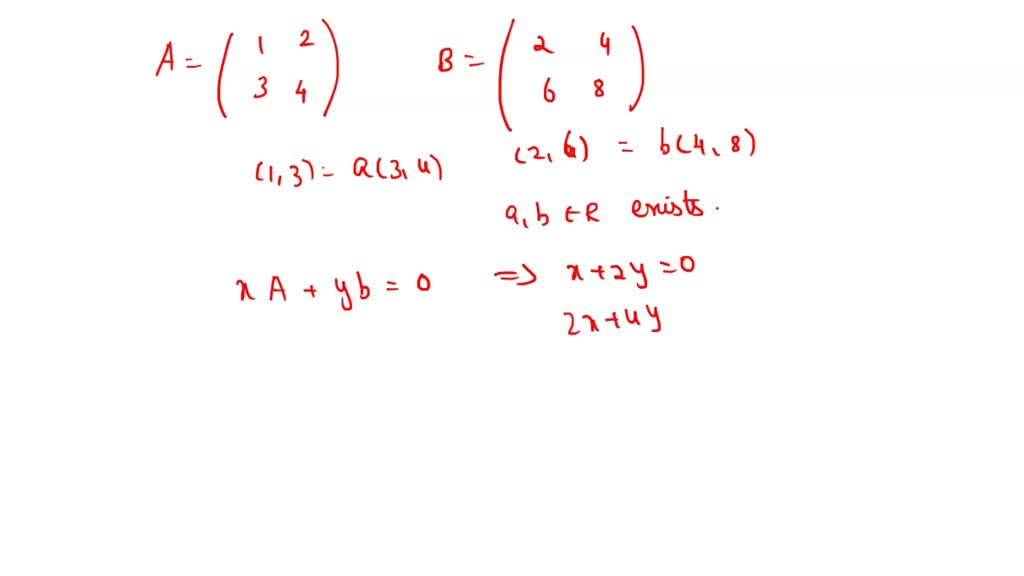 A = ( 1 2 B = ( 2 4
3 4 ) 6 8 )
(1,3) = a(3,4) (2,6) = b(4,8)
a, b ∈ R exists.
x A + y b = 0 => x + 2y = 0
2x + 4y